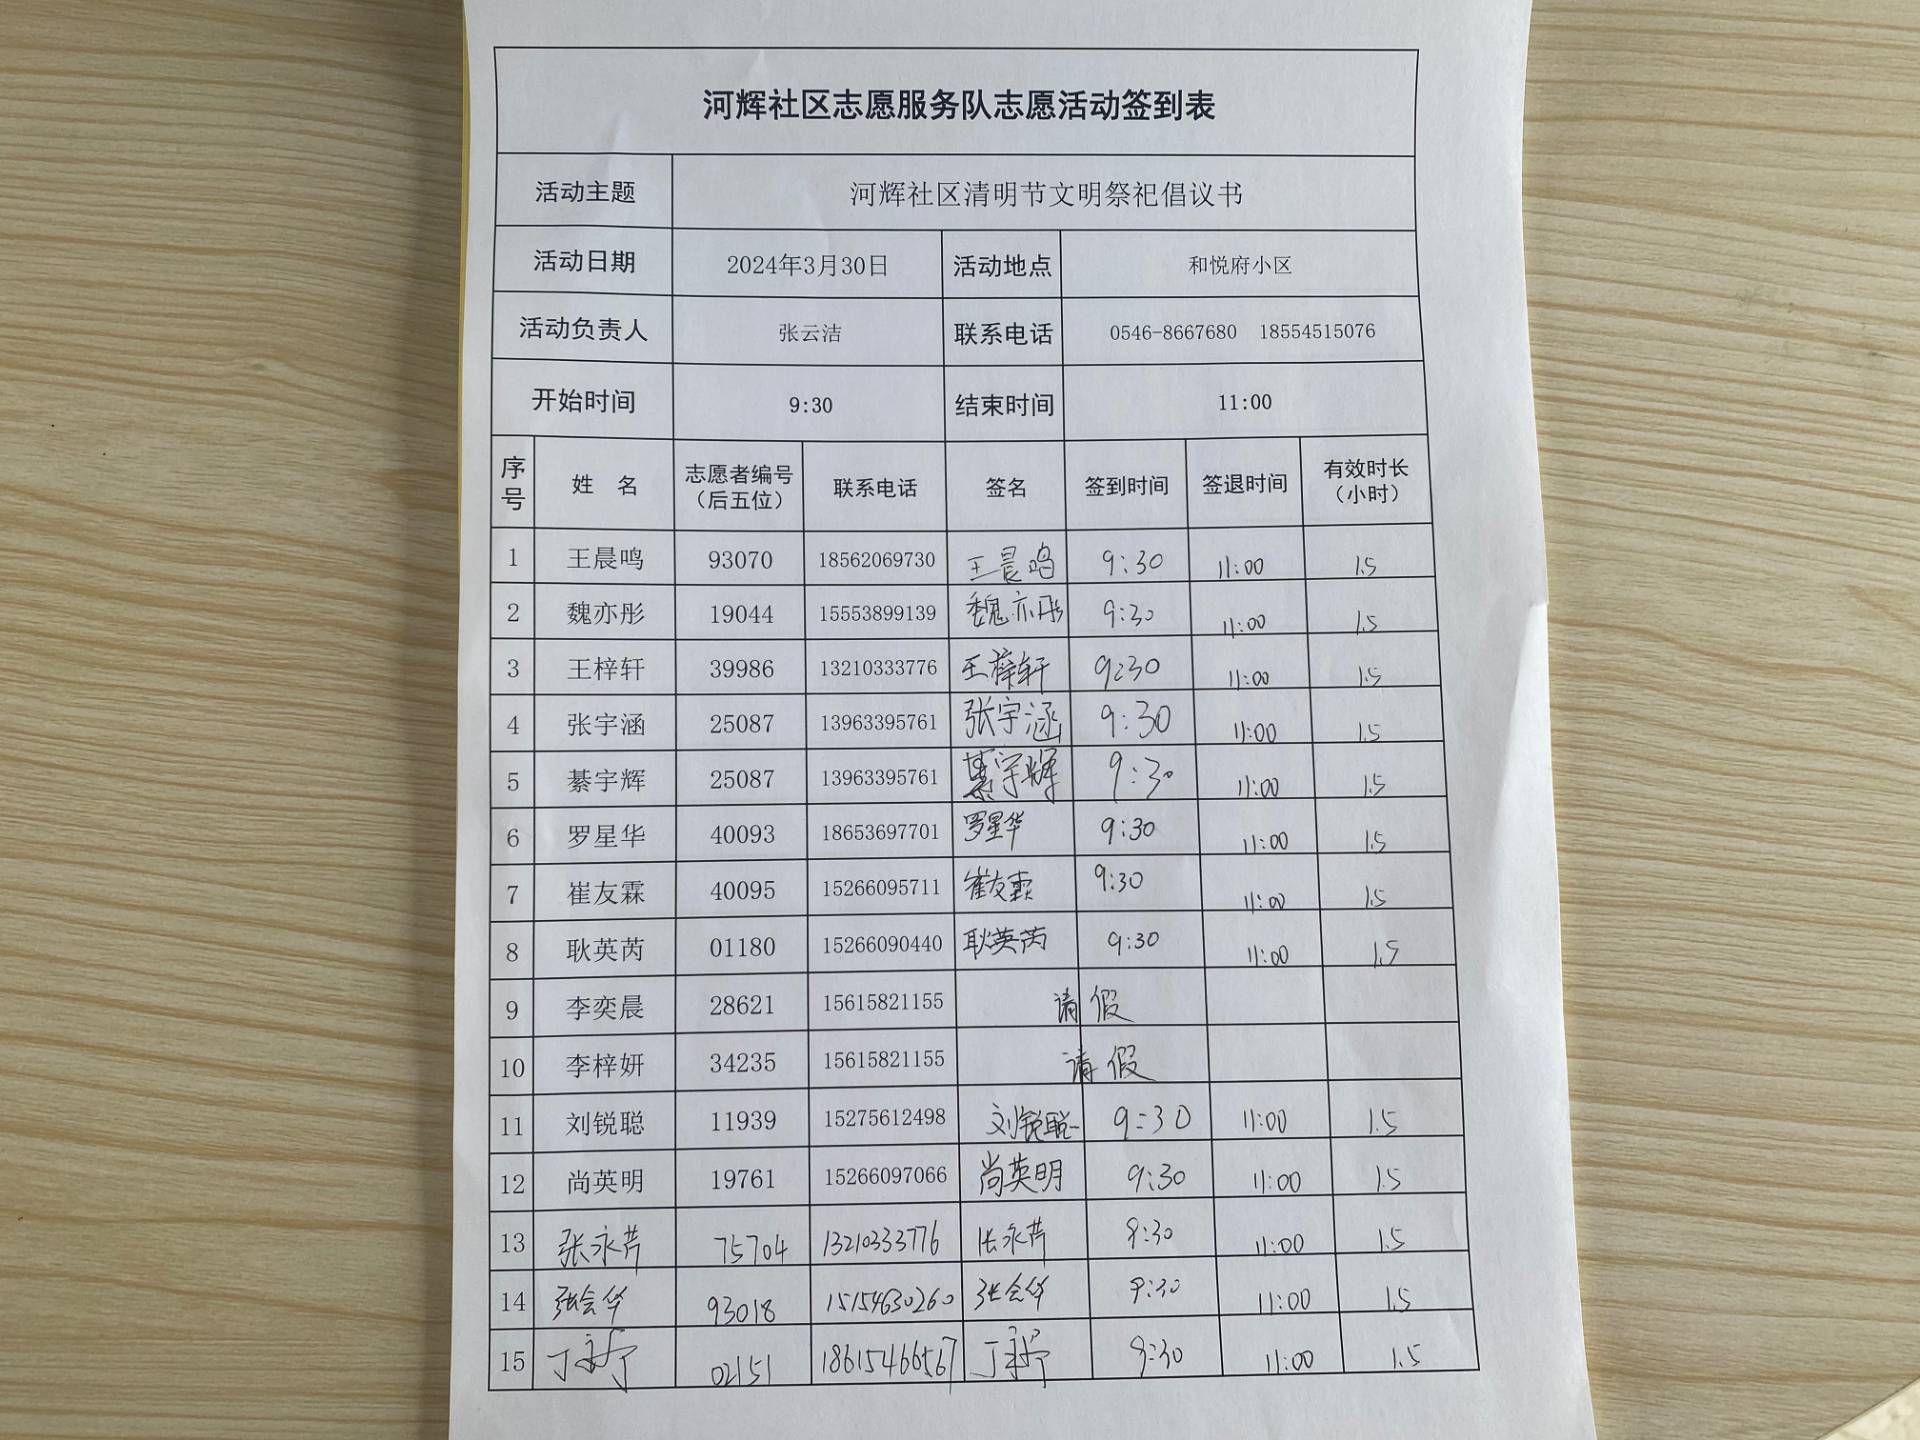 河辉社区志愿服务队志愿活动签到表
活动主题 河辉社区清明节文明祭祀倡议书
活动日期 2024年3月30日 活动地点 和悦府小区
活动负责人 张云洁 联系电话 0546-8667680 18554515076
开始时间 9:30 结束时间 11:00
序号 姓 名 志愿者编号（后五位） 联系电话 签名 签到时间 签退时间 有效时长（小时）
1 王晨鸣 93070 18562069730 王晨鸣 9:30 11:00 1.5
2 魏亦彤 19044 15553899139 魏亦彤 9:30 11:00 1.5
3 王梓轩 39986 13210333776 王梓轩 9:30 11:00 1.5
4 张宇涵 25087 13963395761 张宇涵 9:30 11:00 1.5
5 綦宇辉 25087 13963395761 綦宇辉 9:30 11:00 1.5
6 罗星华 40093 18653697701 罗星华 9:30 11:00 1.5
7 崔友霖 40095 15266095711 崔友霖 9:30 11:00 1.5
8 耿英芮 01180 15266090440 耿英芮 9:30 11:00 1.5
9 李奕晨 28621 15615821155 请假
10 李梓妍 34235 15615821155 请假
11 刘锐聪 11939 15275612498 刘锐聪 9:30 11:00 1.5
12 尚英明 19761 15266097066 尚英明 9:30 11:00 1.5
13 张永芹 75704 13210333776 张永芹 9:30 11:00 1.5
14 张会华 93018 15154630260 张会华 9:30 11:00 1.5
15 02151 18615466567 9:30 11:00 1.5